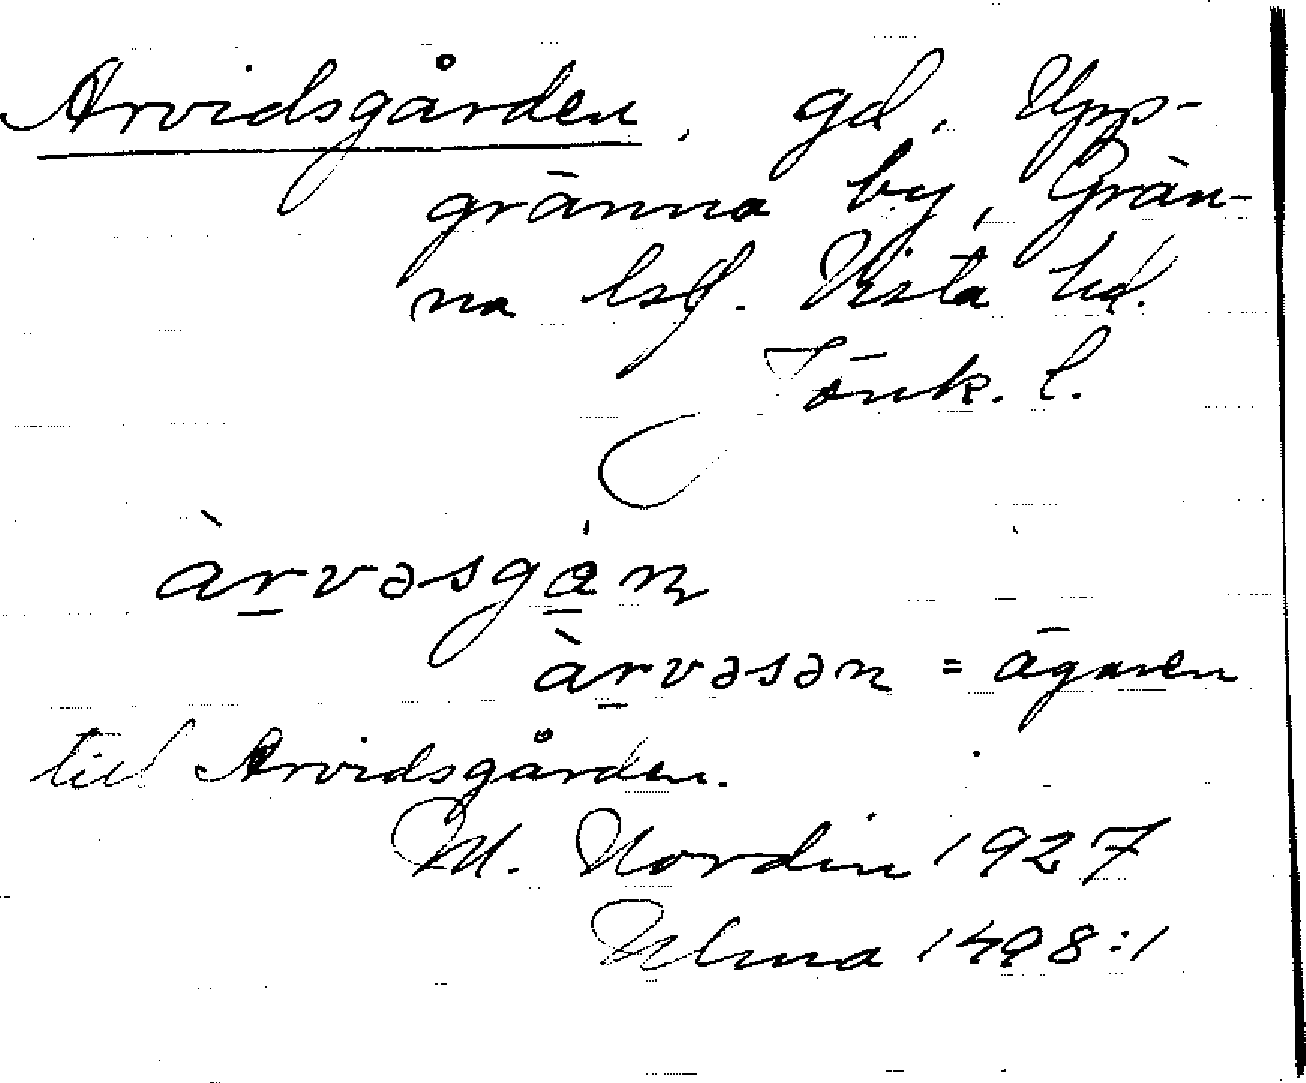 Arvidsgården, gd, Upp-
gränna by, Grän-
na lsf. Vista hd.
Jönk. l.
àr̲vəsgá̲n̡
àr̲vəsən = ägaren
till Arvidsgården.
M. Nordin 1927
Ulma 1498:1